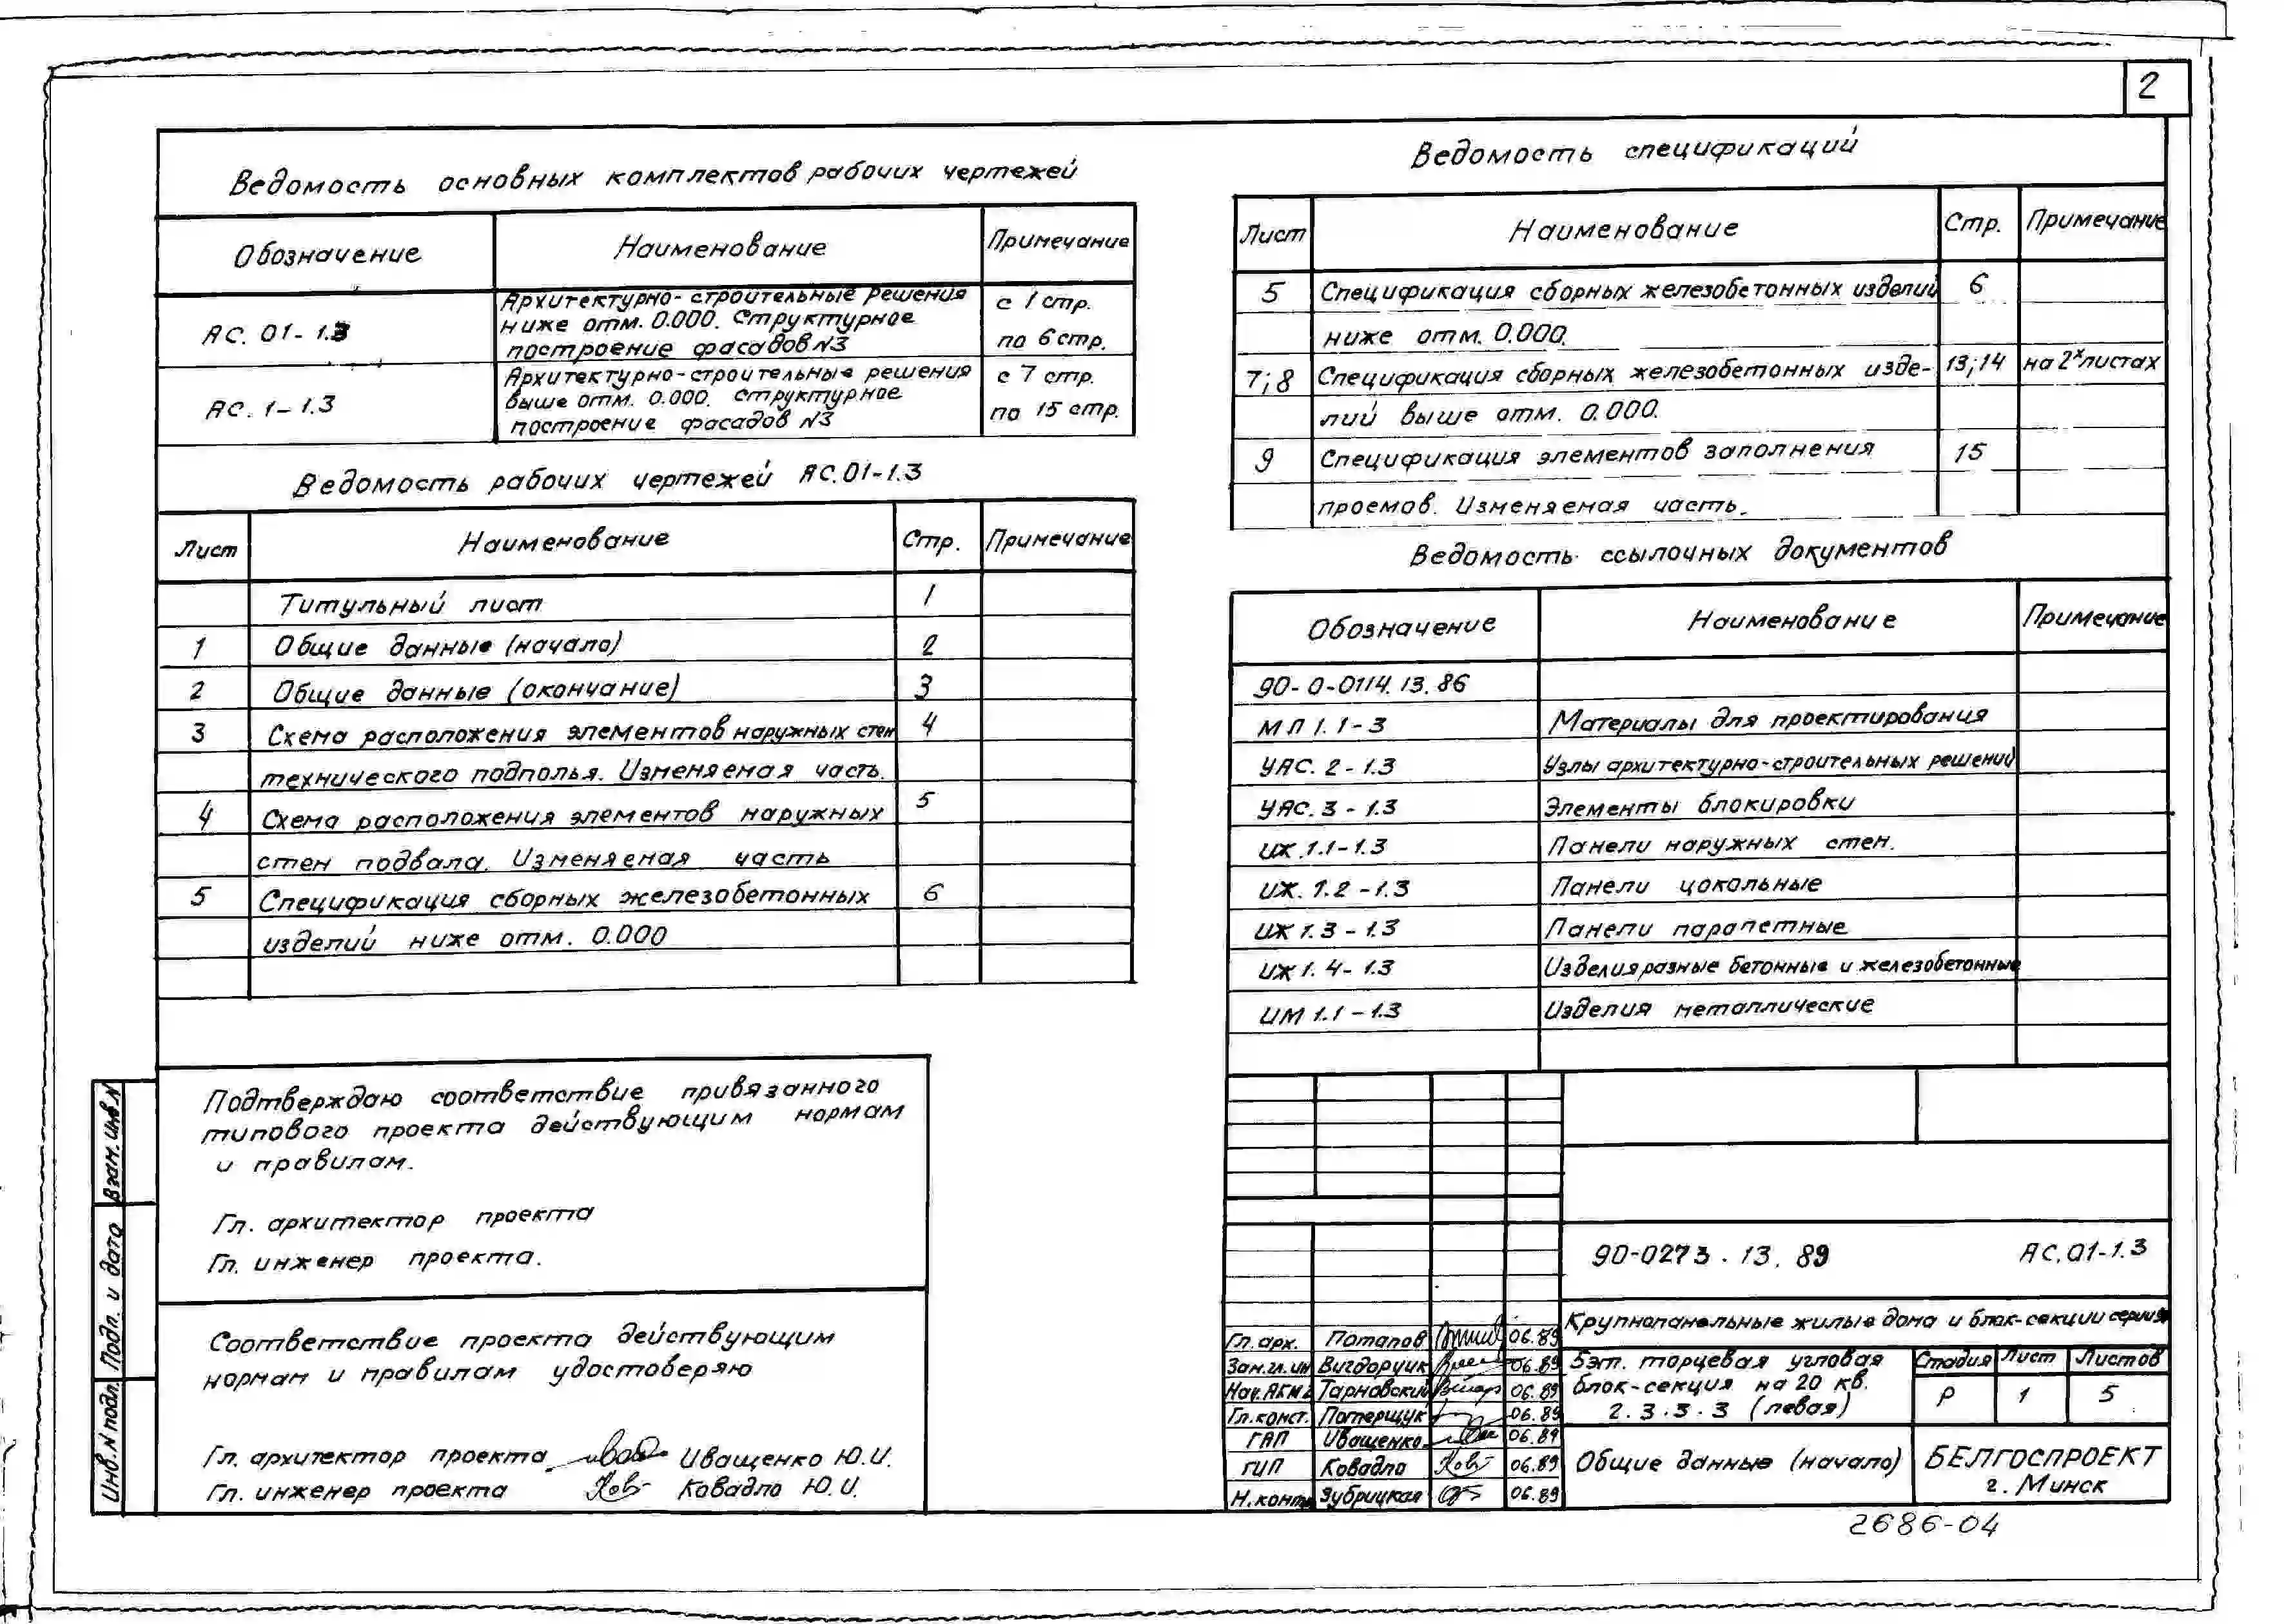 2
Ведомость основных комплектов рабочих чертежей
Обозначение Наименование Примечание
АС. 01-1.3 Архитектурно-строительные решения ниже отм. 0.000. Структурное построение фасадов №3 с 1 стр. по 6 стр.
АС. 1-1.3 Архитектурно-строительные решения выше отм. 0.000. Структурное построение фасадов №3 с 7 стр. по 15 стр.
Ведомость рабочих чертежей АС.01-1.3
Лист Наименование Стр. Примечание
Титульный лист 1
1 Общие данные (начало) 2
2 Общие данные (окончание) 3
3 Схема расположения элементов наружных стен 4
технического подполья. Изменяемая часть.
4 Схема расположения элементов наружных 5
стен подвала. Изменяемая часть
5 Спецификация сборных железобетонных 6
изделий ниже отм. 0.000
Подтверждаю соответствие привязанного
типового проекта действующим нормам
и правилам.
Гл. архитектор проекта
Гл. инженер проекта.
Соответствие проекта действующим
нормам и правилам удостоверяю
Гл. архитектор проекта Иващенко Ю.И.
Гл. инженер проекта Ковадло Ю.И.
Взам. инв.N
Подп. и дата
Инв.N подл.
Ведомость спецификаций
Лист Наименование Стр. Примечание
5 Спецификация сборных железобетонных изделий 6
ниже отм. 0.000.
7;8 Спецификация сборных железобетонных изде- 13;14 на 2х листах
лий выше отм. 0.000.
9 Спецификация элементов заполнения 15
проемов. Изменяемая часть.
Ведомость ссылочных документов
Обозначение Наименование Примечание
90-0-0114.13.86
МП 1.1-3 Материалы для проектирования
УАС. 2-1.3 Узлы архитектурно-строительных решений
УАС. 3-1.3 Элементы блокировки
ИЖ.1.1-1.3 Панели наружных стен.
ИЖ. 1.2-1.3 Панели цокольные
ИЖ 1.3-1.3 Панели парапетные
ИЖ 1.4-1.3 Изделия разные бетонные и железобетонные
ИМ 1.1-1.3 Изделия металлические
90-0273.13.89 АС.01-1.3
Крупнопанельные жилые дома и блок-секции серии
Гл.арх. Потапов 06.89
Зам.гл.ин Вигдорчик 06.89
Нач.АКМ2 Тарновский 06.89
Гл.конст. Потерщук 06.89
ГАП Иващенко 06.89
ГИП Ковадло 06.89
Н.контр Зубрицкая 06.89
5эт. торцевая угловая
блок-секция на 20 кв.
2.3.3.3 (левая)
Стадия Лист Листов
Р 1 5
Общие данные (начало)
БЕЛГОСПРОЕКТ
г. Минск
2686-04